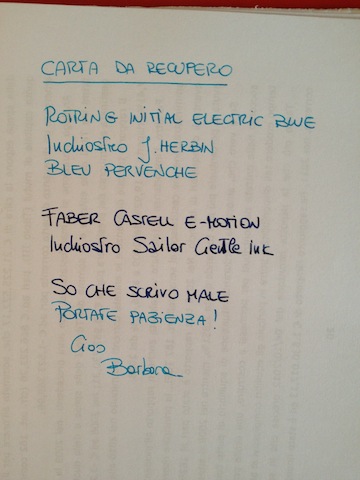 CARTA DA RECUPERO
ROTRING INITIAL ELECTRIC BLUE
Inchiostro J. HERBIN
BLEU PERVENCHE
FABER CASTELL E-MOTION
Inchiostro Sailor Gentle Ink
SO CHE SCRIVO MALE
PORTATE PAZIENZA!
Ciao
Barbara